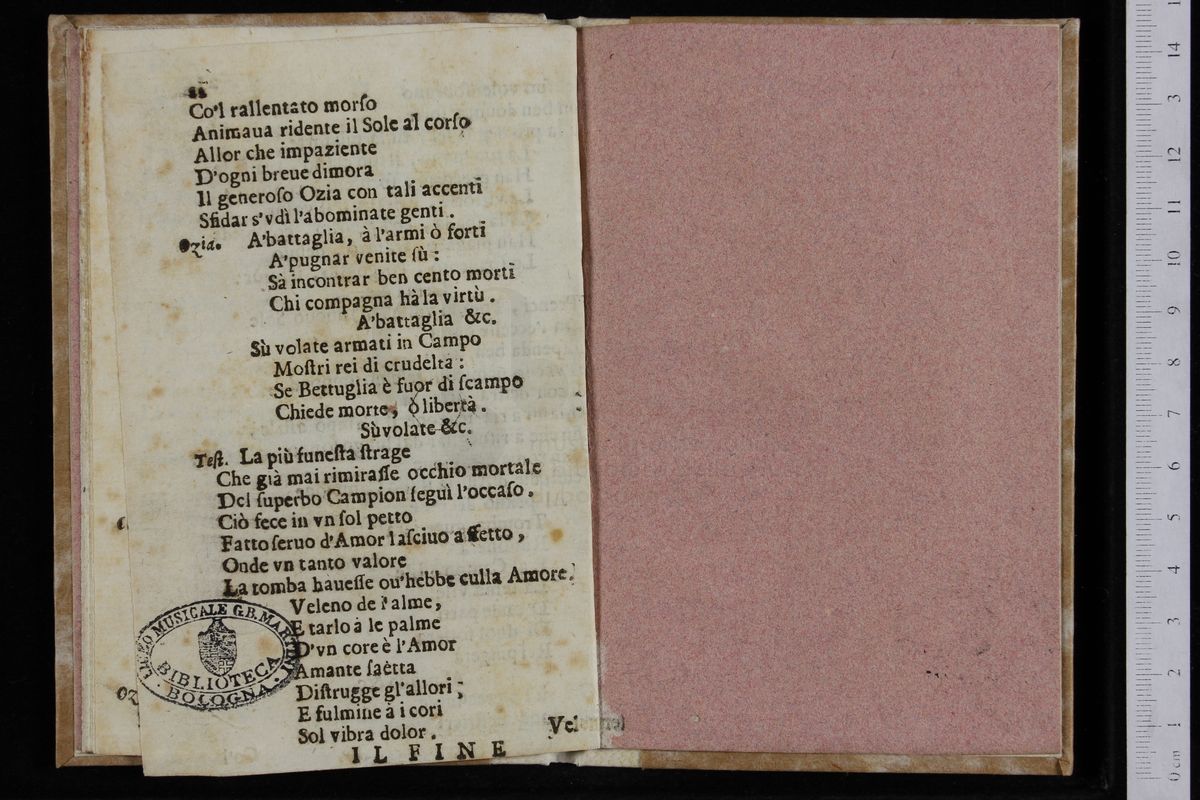 Co'l rallentato morſo
Animaua ridente il Sole al corſo
Allor che impaziente
D'ogni breue dimora
Il generoſo Ozia con tali accenti
Sfidar s'vdì l'abominate genti.
Ozia. A'battaglia, à l'armi ò forti
A'pugnar venite sù:
Sà incontrar ben cento morti
Chi compagna hà la virtù.
A'battaglia &c.
Sù volate armati in Campo
Moſtri rei di crudelta:
Se Bettuglia è fuor di ſcampo
Chiede morte, ò libertà.
Sù volate &c.
Teſt. La più funeſta ſtrage
Che già mai rimiraſſe occhio mortale
Del ſuperbo Campion ſeguì l'occaſo.
Ciò fece in vn ſol petto
Fatto ſeruo d'Amor laſciuo affetto,
Onde vn tanto valore
La tomba haueſſe ou'hebbe culla Amore.
Veleno de l'alme,
E tarlo à le palme
D'vn core è l'Amor
Amante ſaètta
Diſtrugge gl'allori;
E fulmine à i cori
Sol vibra dolor.
IL FINE
LICEO MUSICALE G.B. MARTINI
BIBLIOTECA
· BOLOGNA ·
Oz
0 cm 1 2 3 4 5 6 7 8 9 10 11 12 3 14 1